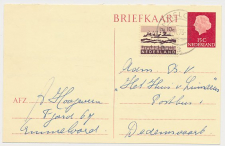 BRIEFKAART
15C
NEDERLAND
NEDERLAND
AFZ
J. Hoogeveen
Fjord 67
Emmeloord
Adm. B.V.
"Het Huis v Linnen"
Postbus 1
Dedemsvaart